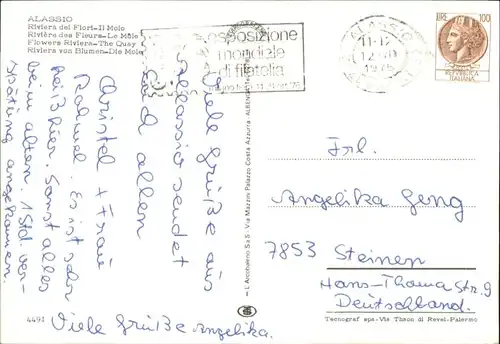 ALASSIO
Riviera dei Fiori-Il Molo
Rivière des Fleurs-Le Môle
Flowers Riviera-The Quay
Riviera von Blumen-Die Mole
esposizione
mondiale
di filatelia
ALASSIO
11-12
1976
LIRE 100
REPUBBLICA
ITALIANA
Viele Grüße aus
Alassio sendet
euch allen
Christel + Frau
Rahmel. Es ist sehr
heiß hier. Sonst alles
beim alten. 1 Std. ver-
spätung angekommen.
Viele Grüße Angelika.
4491
- L'Arcobaleno SaS - Via Mazzini Palazzo Costa Azzurra - ALBENGA
Frl.
Angelika Geng
7853 Steinen
Hans-Thoma Str. 9
Deutschland.
Tecnograf spa - Via Thaon di Revel - Palermo